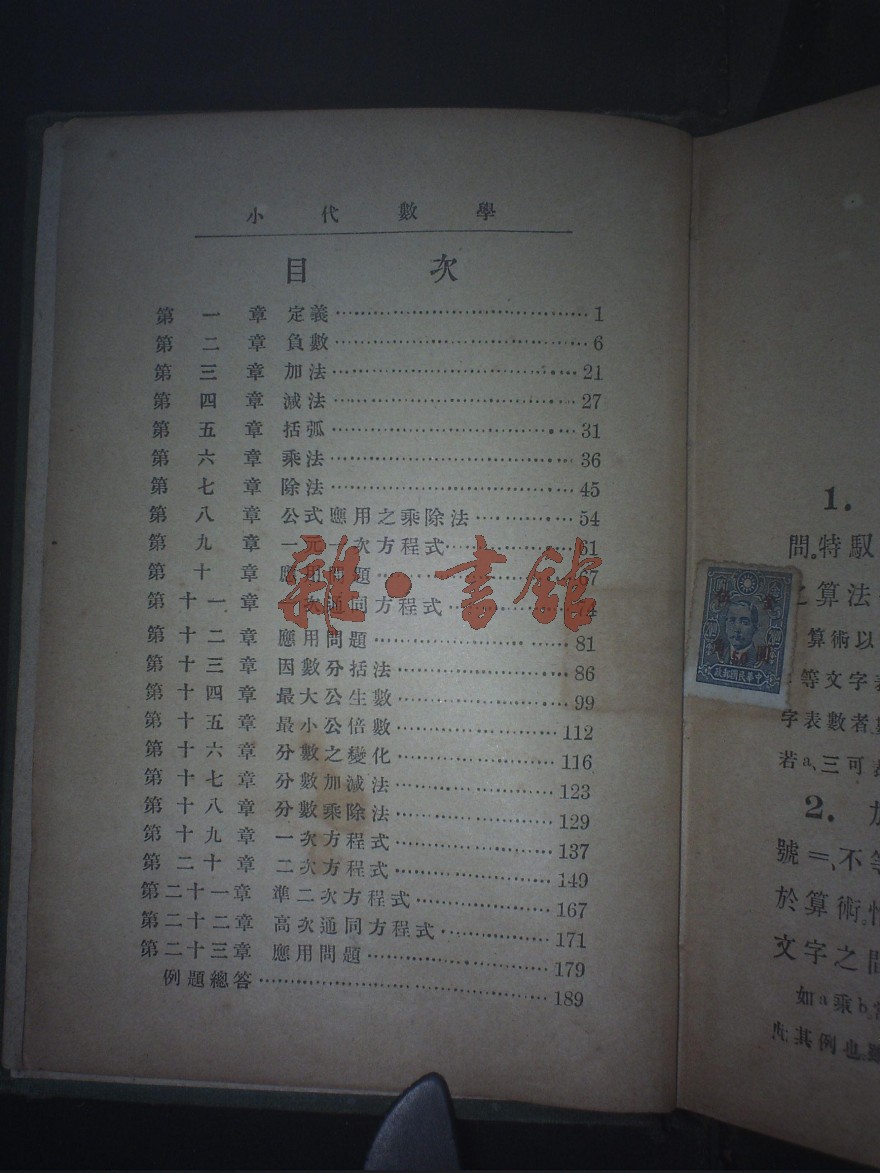 小代數學
目次
第一章 定義 1
第二章 負數 6
第三章 加法 21
第四章 減法 27
第五章 括弧 31
第六章 乘法 36
第七章 除法 45
第八章 公式應用之乘除法 54
第九章 一元一次方程式 61
第十章 應用問題 67
第十一章 一次通同方程式 74
第十二章 應用問題 81
第十三章 因數分括法 86
第十四章 最大公生數 99
第十五章 最小公倍數 112
第十六章 分數之變化 116
第十七章 分數加減法 123
第十八章 分數乘除法 129
第十九章 一次方程式 137
第二十章 二次方程式 149
第二十一章 準二次方程式 167
第二十二章 高次通同方程式 171
第二十三章 應用問題 179
例題總答 189
雜·書館
1.
問。特馭
之算法
算術以
等文字表
字表數者
若a、三可表
2.
號=、不等
於算術。
文字之
如a乘b。
其例也。
50
政郵國民華中